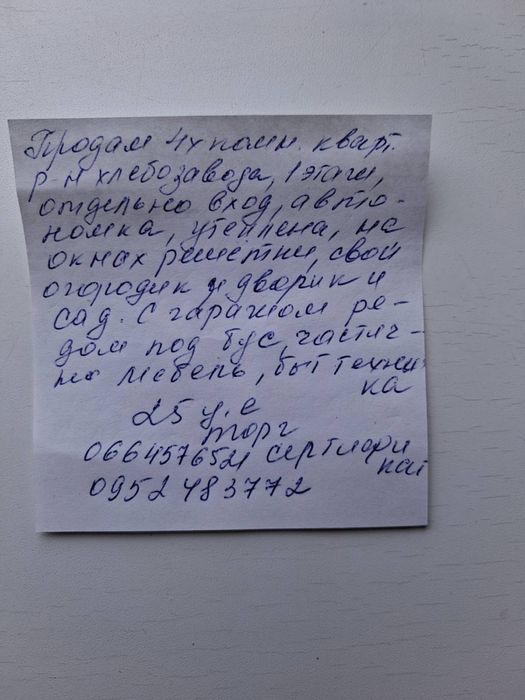 Продам 4х комн. кварт.
р-н хлебозавода, 1 этаж,
отдельно вход, авто-
номка, утеплена, на
окнах решетки, свой
огородик и дворик и
сад. С гаражом ре-
дом под бус, частич-
но мебель, быт техни
ка
25 у.е
торг
0664576521 сертифи
кат
0952483772